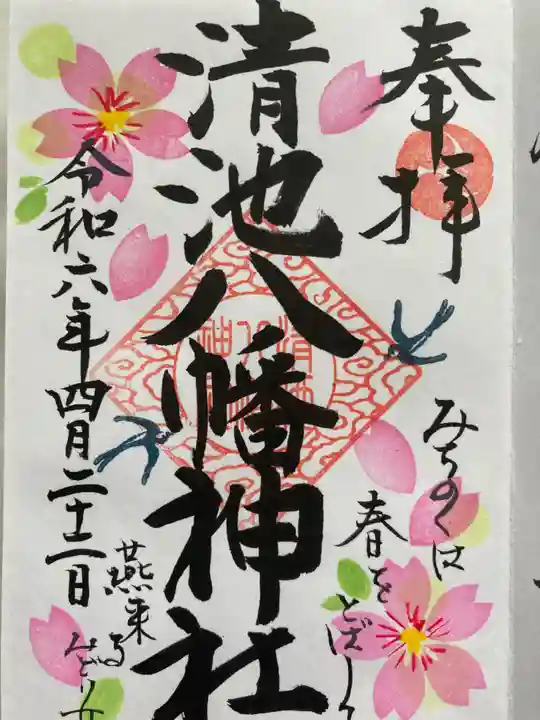 奉拝
みちのくは
春をとばし
清池八幡神社
燕来る
令和六年四月二十二日